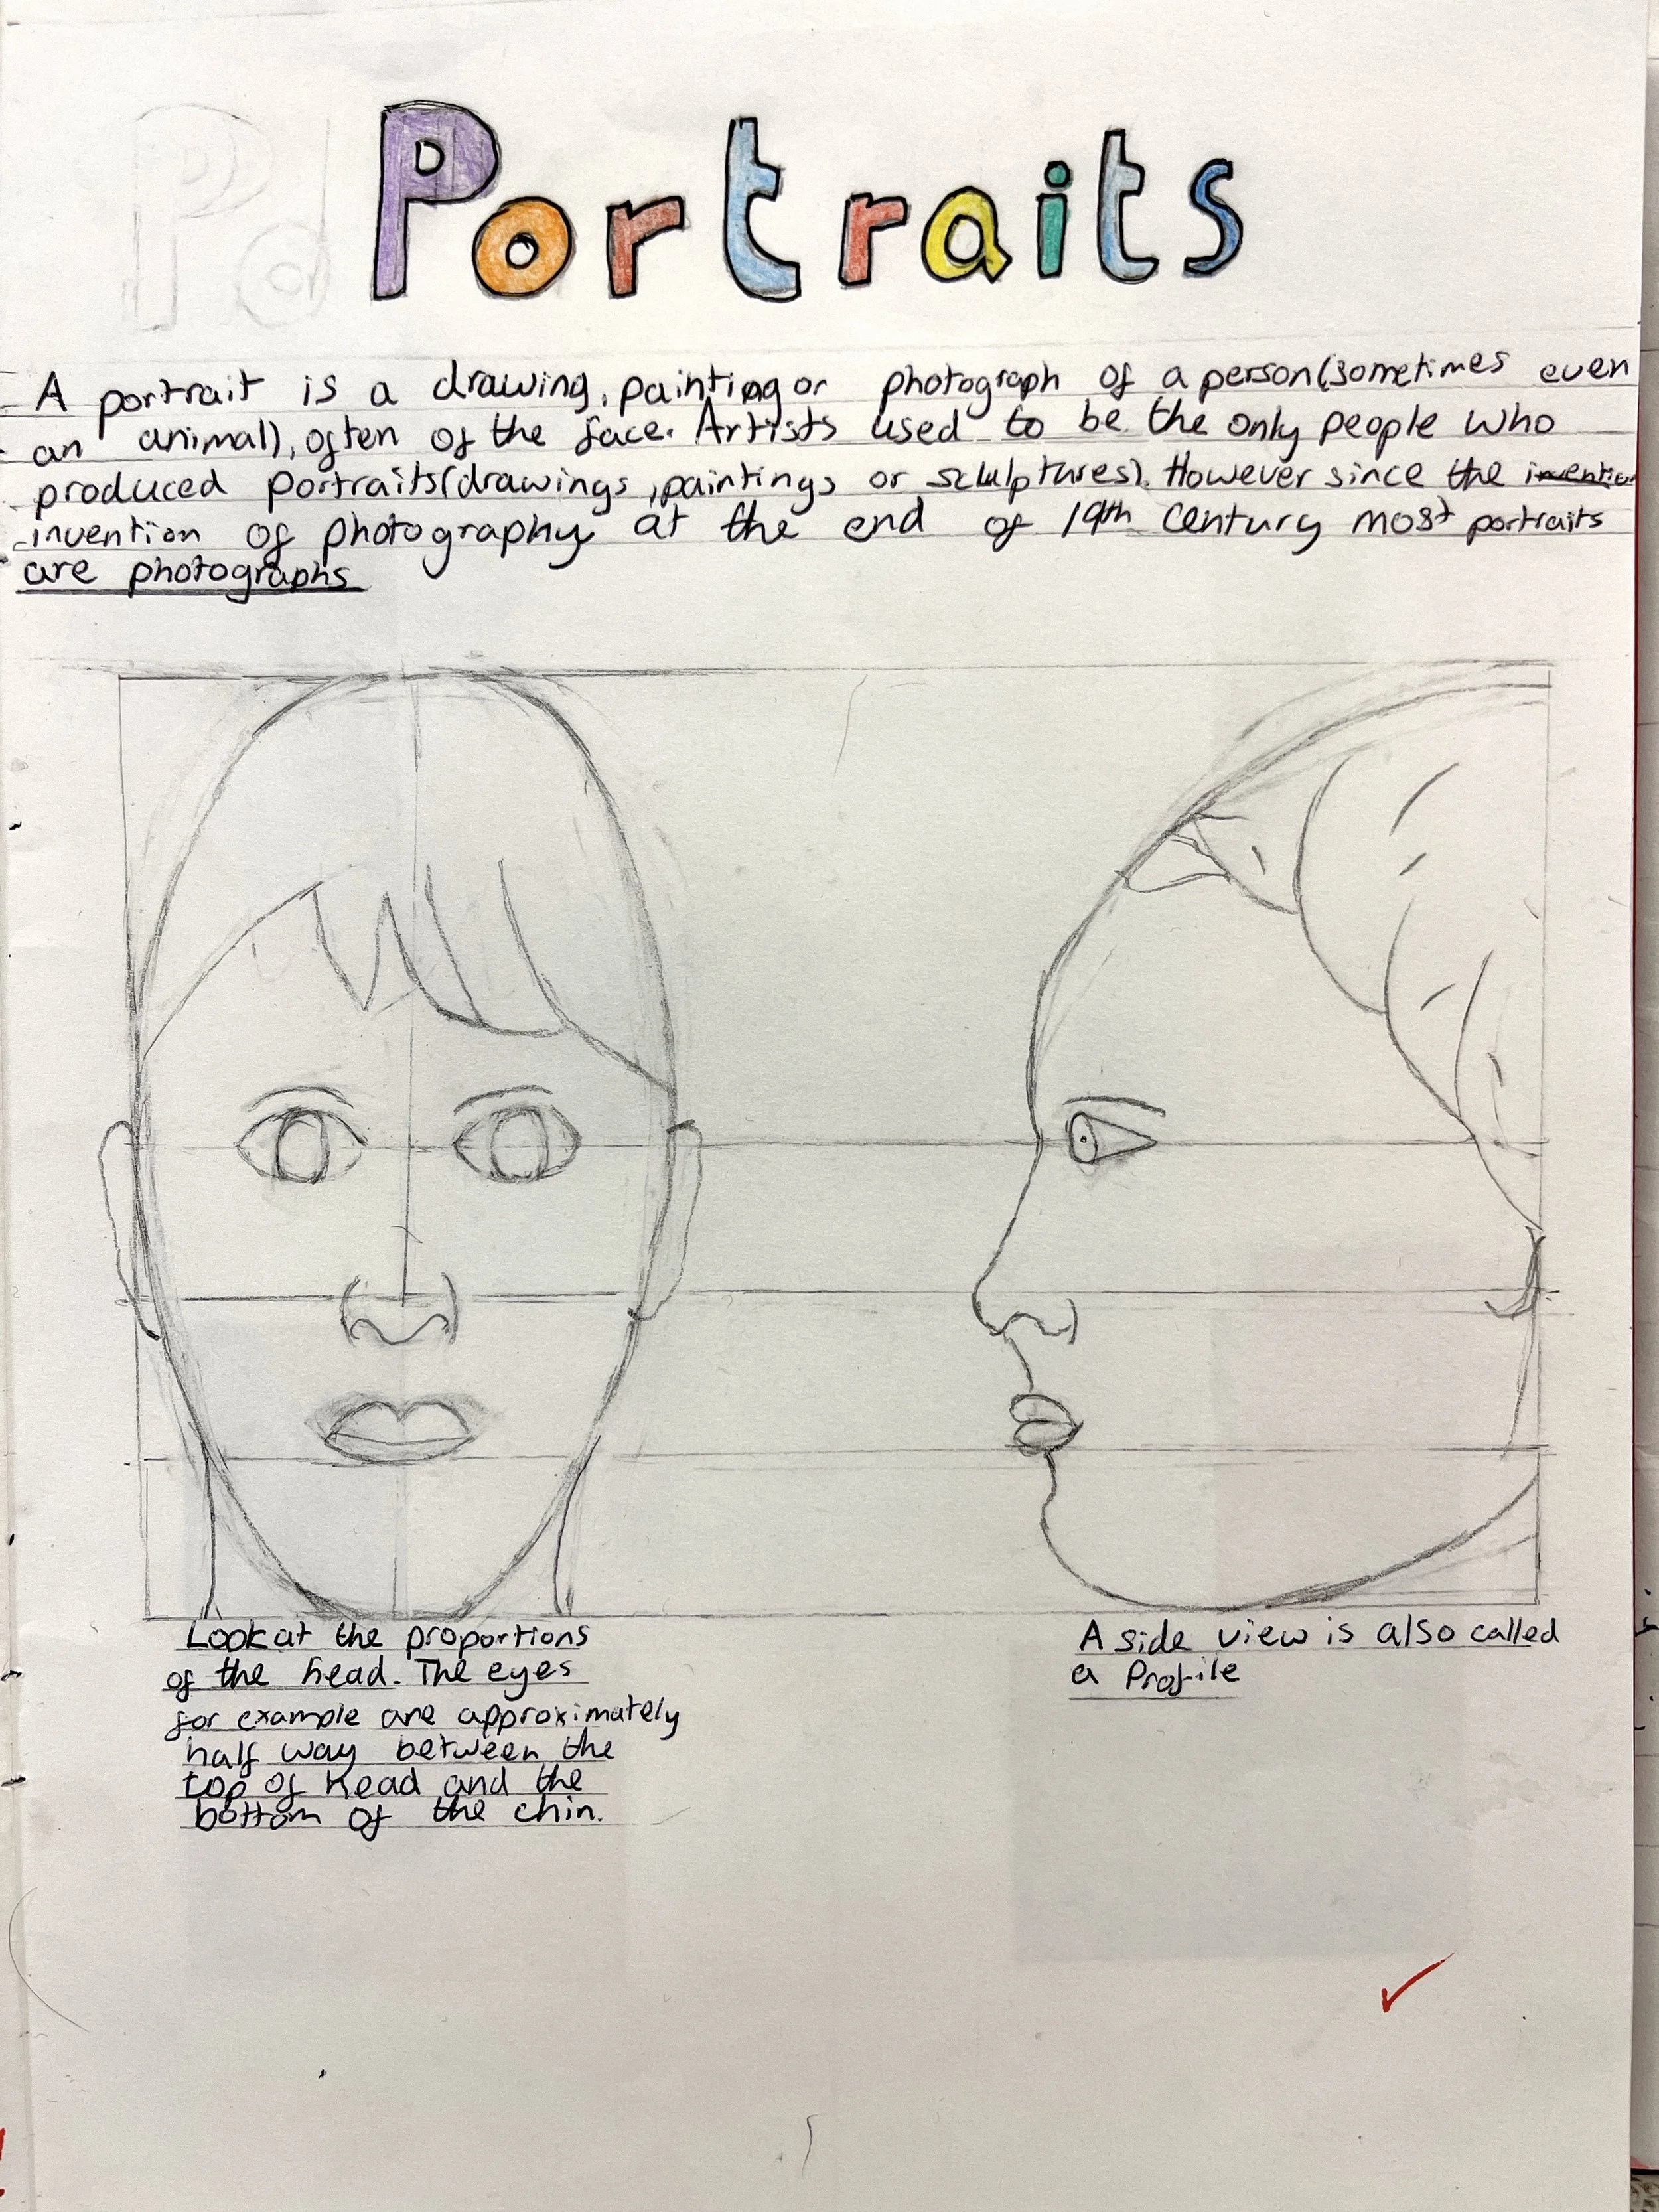 Portraits
A portrait is a drawing, painting or photograph of a person (sometimes even
an animal), often of the face. Artists used to be the only people who
produced portraits (drawings, paintings or sculptures). However since the invention
invention of photography at the end of 19th century most portraits
are photographs
Look at the proportions
of the head. The eyes
for example are approximately
half way between the
top of head and the
bottom of the chin.
A side view is also called
a Profile